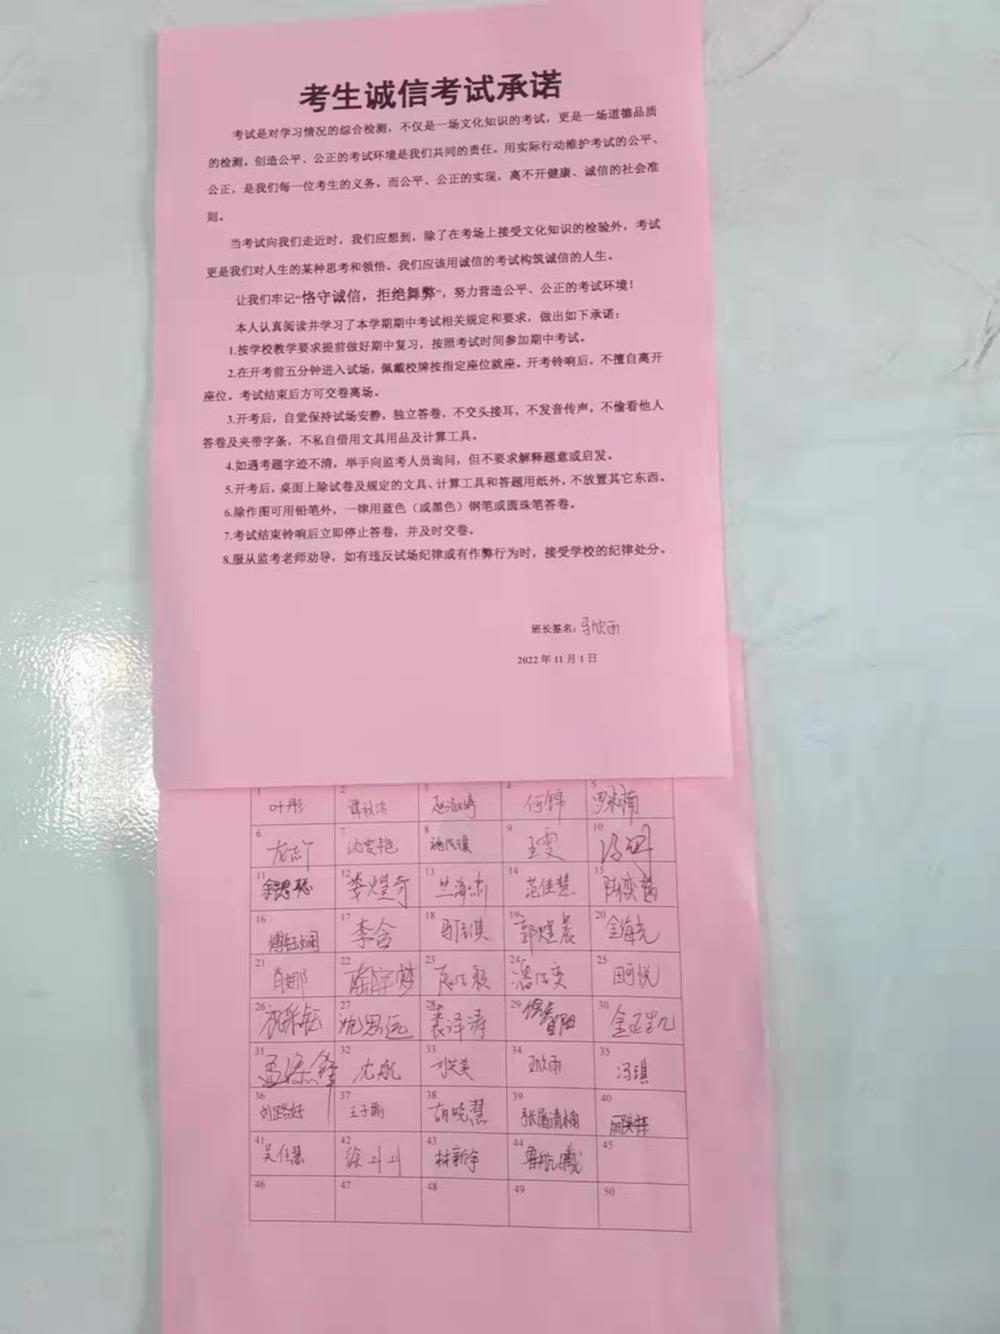 考生诚信考试承诺
考试是对学习情况的综合检测，不仅是一场文化知识的考试，更是一场道德品质
的检测。创造公平、公正的考试环境是我们共同的责任。用实际行动维护考试的公平、
公正，是我们每一位考生的义务。而公平、公正的实现，离不开健康、诚信的社会准
则。
当考试向我们走近时，我们应想到，除了在考场上接受文化知识的检验外，考试
更是我们对人生的某种思考和领悟。我们应该用诚信的考试构筑诚信的人生。
让我们牢记“恪守诚信，拒绝舞弊”，努力营造公平、公正的考试环境！
本人认真阅读并学习了本学期期中考试相关规定和要求，做出如下承诺：
1.按学校教学要求提前做好期中复习，按照考试时间参加期中考试。
2.在开考前五分钟进入试场，佩戴校牌按指定座位就座。开考铃响后，不擅自离开
座位。考试结束后方可交卷离场。
3.开考后，自觉保持试场安静，独立答卷，不交头接耳，不发音传声，不偷看他人
答卷及夹带字条，不私自借用文具用品及计算工具。
4.如遇考题字迹不清，举手向监考人员询问，但不要求解释题意或启发。
5.开考后，桌面上除试卷及规定的文具、计算工具和答题用纸外，不放置其它东西。
6.除作图可用铅笔外，一律用蓝色（或黑色）钢笔或圆珠笔答卷。
7.考试结束铃响后立即停止答卷，并及时交卷。
8.服从监考老师劝导，如有违反试场纪律或有作弊行为时，接受学校的纪律处分。
班长签名：马欣雨
2022 年 11 月 1 日
1 叶彤 2 3 4 何锦 5
6 7 8 9 王雯 10
11 12 李煌奇 13 14 范佳慧 15
16 17 李含 18 19 郭煜晨 20 金海亮
21 肖娜 22 23 24 25 田可悦
26 27 沈思远 28 裘泽涛 29 30 金正凯
31 32 尤航 33 34 35 冯琪
36 37 王子萌 38 胡晓慧 39 40
41 吴佳慧 42 43 林新宇 44 鲁航曦 45
46 47 48 49 50